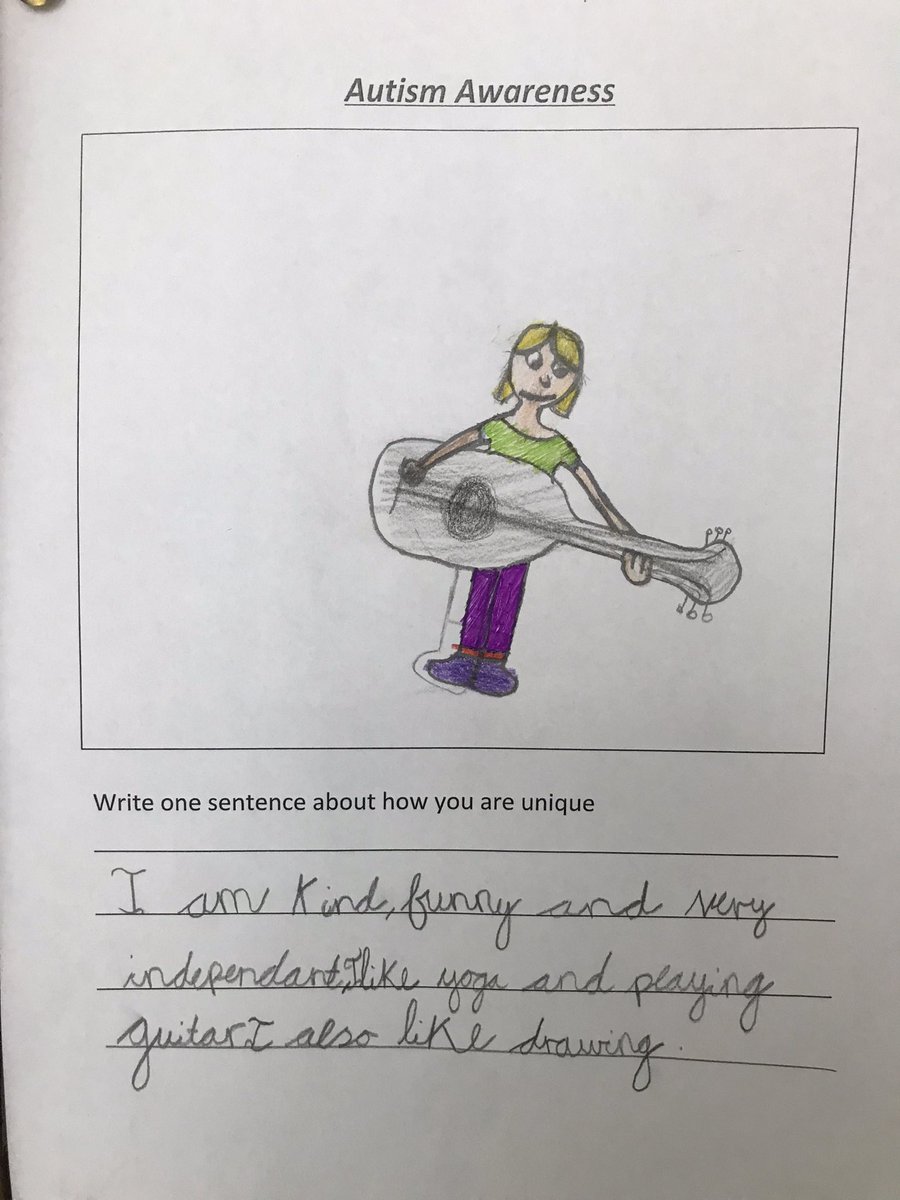 Autism Awareness
Write one sentence about how you are unique
I am kind, funny and very
independant, I like yoga and playing
guitar I also like drawing.